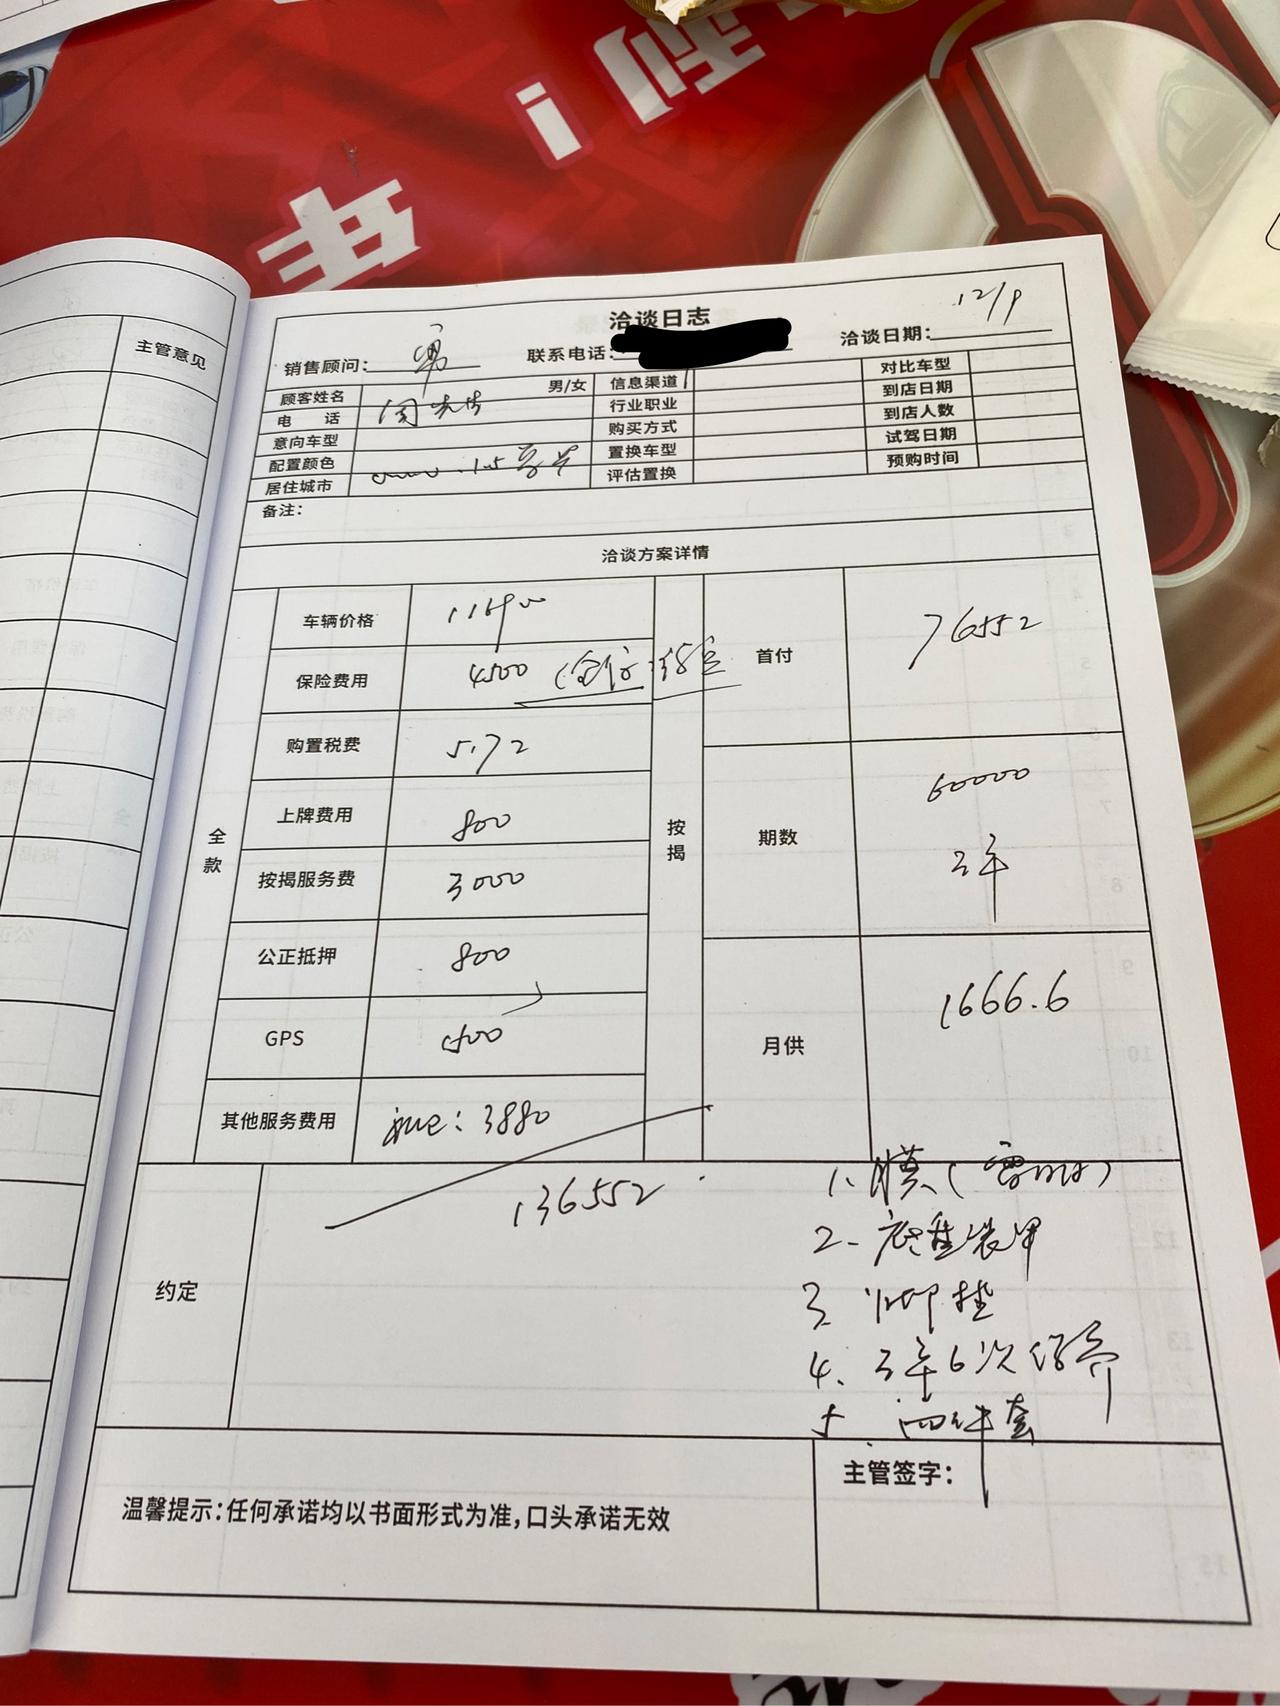 主管意见
洽谈日志
12/9
销售顾问：
联系电话：
洽谈日期：
顾客姓名
男/女
信息渠道
对比车型
电 话
行业职业
到店日期
意向车型
购买方式
到店人数
配置颜色
置换车型
试驾日期
居住城市
评估置换
预购时间
备注：
洽谈方案详情
全款
车辆价格
保险费用 4500
购置税费 5172
上牌费用 800
按揭服务费 3000
公正抵押 800
GPS
其他服务费用 3880
按揭
首付 76552
期数 60000
3年
月供 1666.6
约定
136552
1. 膜
2. 底盘装甲
3. 脚垫
4. 3年6次保养
5. 四件套
温馨提示：任何承诺均以书面形式为准，口头承诺无效
主管签字：